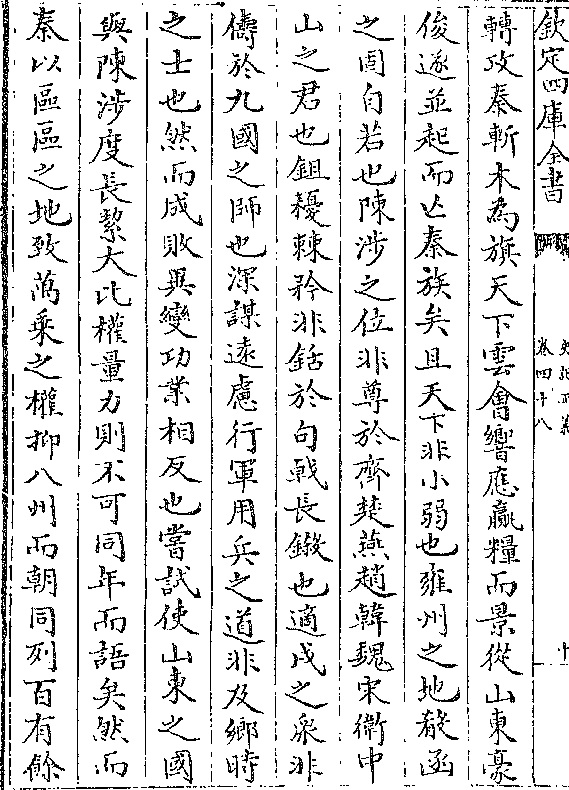 欽定四庫全書
史記正義
卷四十八
十
轉攻秦斬木為旗天下雲會響應贏糧而景從山東豪
俊遂並起而亡秦族矣且天下非小弱也雍州之地殽函
之固自若也陳涉之位非尊於齊楚燕趙韓魏宋衛中
山之君也鉏耰棘矜非銛於句戟長鎩也適戍之衆非
儔於九國之師也深謀遠慮行軍用兵之道非及鄉時
之士也然而成敗異變功業相反也嘗試使山東之國
與陳涉度長絜大比權量力則不可同年而語矣然而
秦以區區之地致萬乘之權抑八州而朝同列百有餘